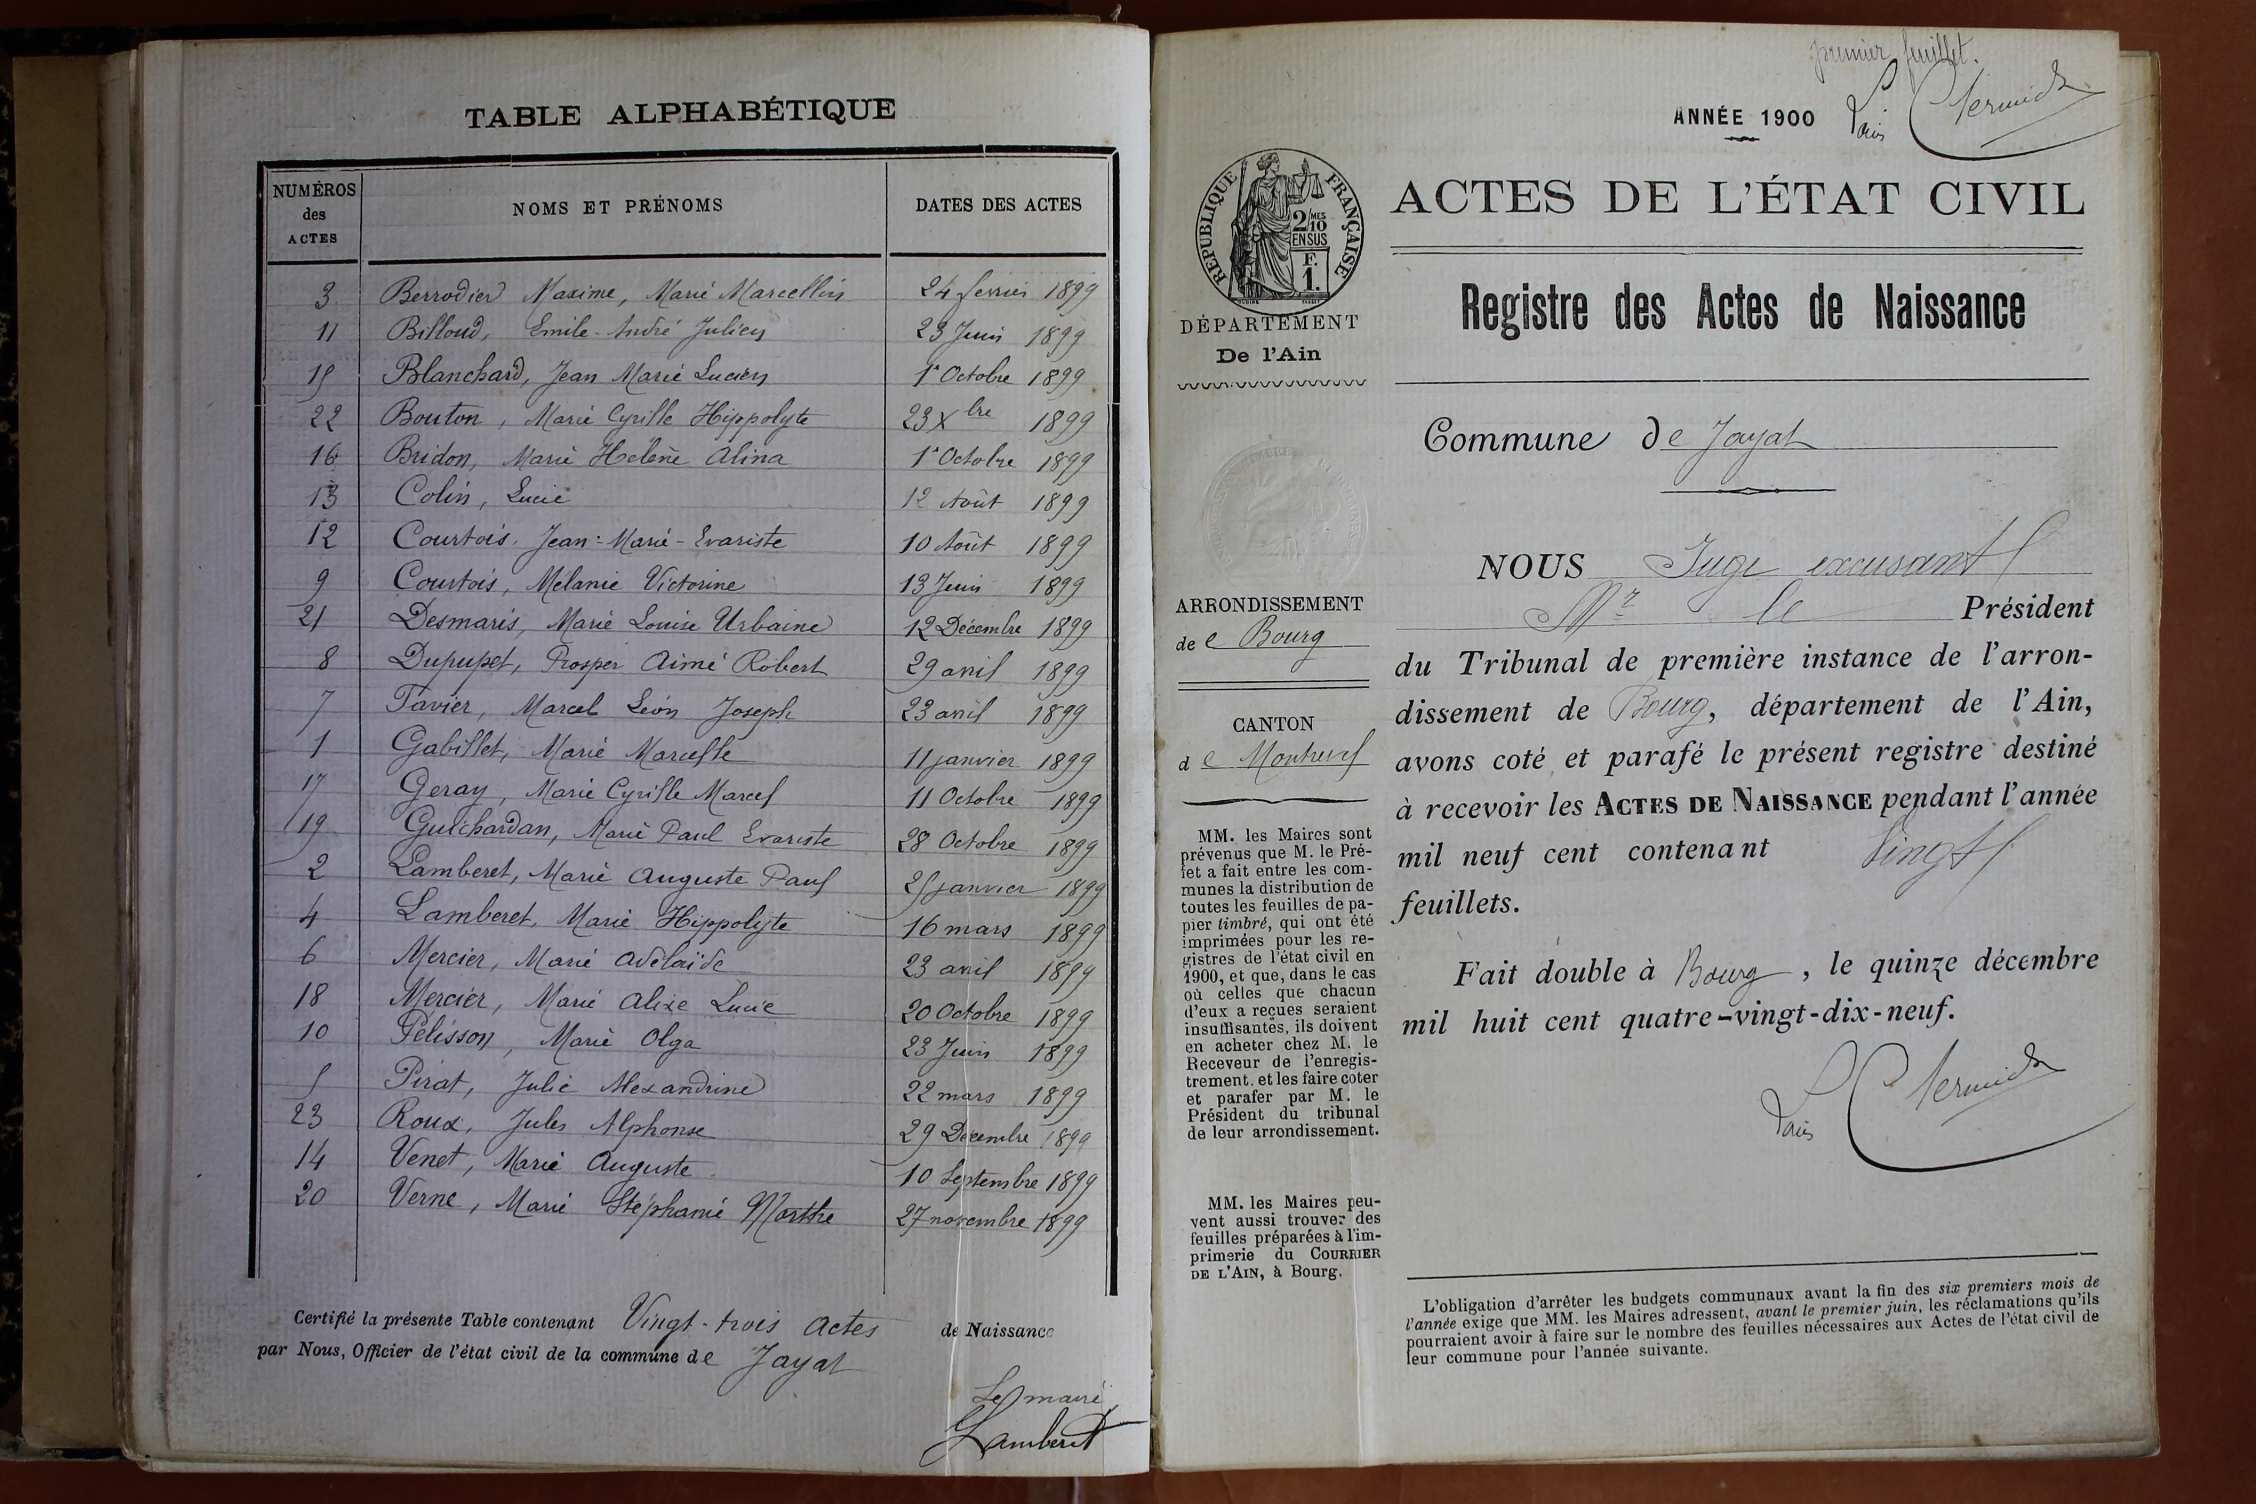 TABLE ALPHABÉTIQUE
NUMÉROS des ACTES NOMS ET PRÉNOMS DATES DES ACTES
3 Berrodier Maxime, Marie Marcellin 24 février 1899
11 Billoud, Emile-André Julien 23 Juin 1899
15 Blanchard, Jean Marie Lucien 1er Octobre 1899
22 Bouton, Marie Cyrille Hippolyte 23 Xbre 1899
16 Bridon, Marie Helène Alina 1er Octobre 1899
13 Colin, Lucie 12 Août 1899
12 Courtois, Jean-Marie-Evariste 10 Août 1899
9 Courtois, Melanie Victorine 13 Juin 1899
21 Desmaris, Marie Louise Urbaine 12 Décembre 1899
8 Dupupet, Prosper Aimé Robert 29 avril 1899
7 Favier, Marcel Léon Joseph 23 avril 1899
1 Gabillet, Marie Marcelle 11 janvier 1899
17 Geray, Marie Cyrille Marcel 11 Octobre 1899
19 Guichardan, Marie Paul Evariste 28 Octobre 1899
2 Lamberet, Marie Auguste Paul 25 janvier 1899
4 Lamberet, Marie Hippolyte 16 mars 1899
6 Mercier, Marie Adélaïde 23 avril 1899
18 Mercier, Marie Alixe Lucie 20 Octobre 1899
10 Pélisson, Marie Olga 23 Juin 1899
5 Pirat, Julie Alexandrine 22 mars 1899
23 Roux, Jules Alphonse 29 Décembre 1899
14 Venet, Marie Auguste 10 Septembre 1899
20 Verne, Marie Stéphanie Marthe 27 novembre 1899
Certifié la présente Table contenant Vingt-trois actes de Naissance
par Nous, Officier de l'état civil de la commune de Jayat
Le maire
Lamberet
premier feuillet.
ANNÉE 1900
Louis
RÉPUBLIQUE FRANÇAISE
2/10 MES
EN SUS
F.
1.
DÉPARTEMENT
De l'Ain
ARRONDISSEMENT
de Bourg
CANTON
de Montrevel
MM. les Maires sont
prévenus que M. le Pré-
fet a fait entre les com-
munes la distribution de
toutes les feuilles de pa-
pier timbré, qui ont été
imprimées pour les re-
gistres de l'état civil en
1900, et que, dans le cas
où celles que chacun
d'eux a reçues seraient
insuffisantes, ils doivent
en acheter chez M. le
Receveur de l'enregis-
trement, et les faire coter
et parafer par M. le
Président du tribunal
de leur arrondissement.
MM. les Maires peu-
vent aussi trouver des
feuilles préparées à l'im-
primerie du COURRIER
DE L'AIN, à Bourg.
ACTES DE L'ÉTAT CIVIL
Registre des Actes de Naissance
Commune de Jayat
NOUS Juge excusant
Mr le Président
du Tribunal de première instance de l'arron-
dissement de Bourg, département de l'Ain,
avons coté et parafé le présent registre destiné
à recevoir les ACTES DE NAISSANCE pendant l'année
mil neuf cent contenant Vingt
feuillets.
Fait double à Bourg, le quinze décembre
mil huit cent quatre-vingt-dix-neuf.
Louis
L'obligation d'arrêter les budgets communaux avant la fin des six premiers mois de
l'année exige que MM. les Maires adressent, avant le premier juin, les réclamations qu'ils
pourraient avoir à faire sur le nombre des feuilles nécessaires aux Actes de l'état civil de
leur commune pour l'année suivante.